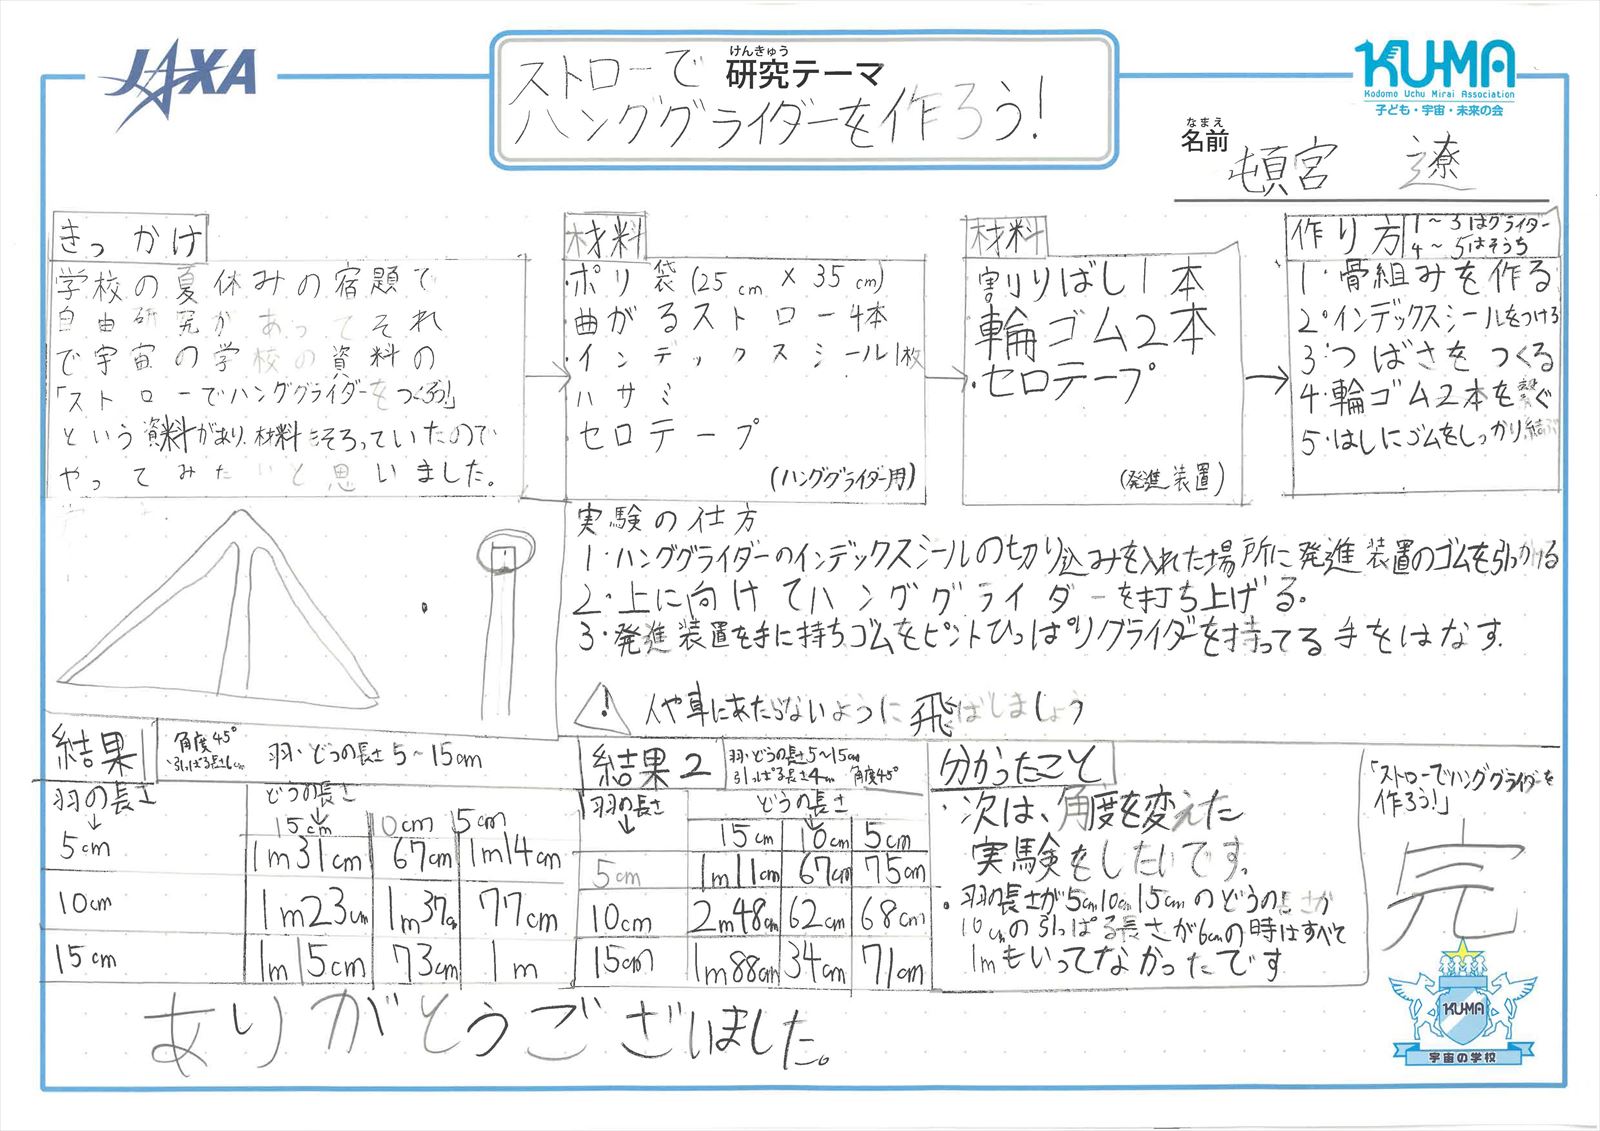 JAXA
けんきゅう
研究テーマ
ストローで
ハンググライダーを作ろう!
KU-MA
Kodomo Uchu Mirai Association
子ども・宇宙・未来の会
なまえ
名前
頓宮 遼
きっかけ
学校の夏休みの宿題で
自由研究があってそれ
で宇宙の学校の資料の
「ストローでハンググライダーをつくろう!」
という資料があり、材料もそろっていたので
やってみたいと思いました。
材料
ポリ袋(25cm×35cm)
曲がるストロー4本
・インデックスシール1枚
ハサミ
セロテープ
(ハンググライダー用)
材料
割りばし1本
輪ゴム2本
・セロテープ
(発進装置)
作り方
1〜3はグライダー
4〜5はそうち
1・骨組みを作る
2・インデックスシールをつける
3・つばさをつくる
4・輪ゴム2本を繋ぐ
5・はしにゴムをしっかり結ぶ
実験の仕方
1・ハンググライダーのインデックスシールの切り込みを入れた場所に発進装置のゴムを引っかける
2・上に向けてハンググライダーを打ち上げる。
3・発進装置を手に持ちゴムをピントひっぱりグライダーを持ってる手をはなす.
! 人や車にあたらないように飛ばしましょう
結果1
角度45°
・引っぱる長さ6cm
羽・どうの長さ5〜15cm
羽の長さ↓ どうの長さ↓
15cm 10cm 5cm
5cm 1m31cm 67cm 1m14cm
10cm 1m23cm 1m37cm 77cm
15cm 1m15cm 73cm 1m
結果2
羽・どうの長さ5〜15cm
引っぱる長さ4cm 角度45°
羽の長さ↓ どうの長さ↓
15cm 10cm 5cm
5cm 1m11cm 67cm 75cm
10cm 2m48cm 62cm 68cm
15cm 1m88cm 34cm 71cm
分かったこと
・次は、角度を変えた
実験をしたいです。
・羽の長さが5cm10cm15cmのどうの長さが
10cmの引っぱる長さが6cmの時はすべて
1mもいってなかったです
「ストローでハンググライダーを
作ろう!」
完
ありがとうございました。
KUMA
宇宙の学校